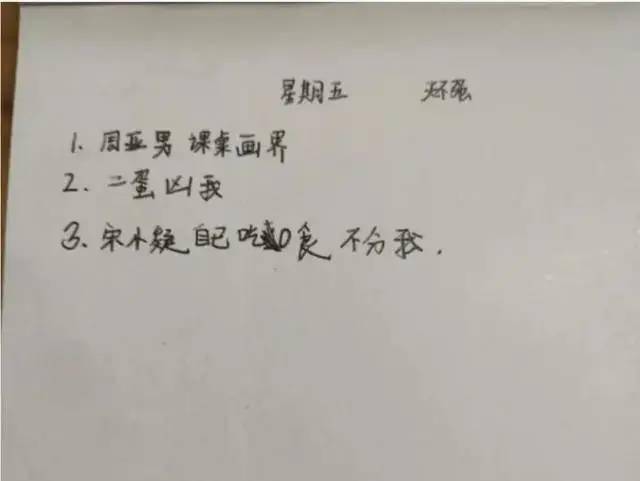 星期五 怀强
1. 周亚男 课桌画界
2. 二蛋凶我
3. 宋小疑 自己吃 食 不分我.